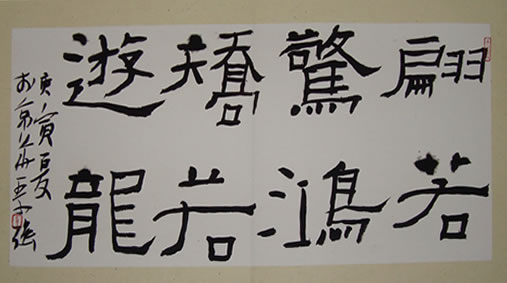 翩若
驚鴻
矯若
遊龍
庚寅夏
於京華